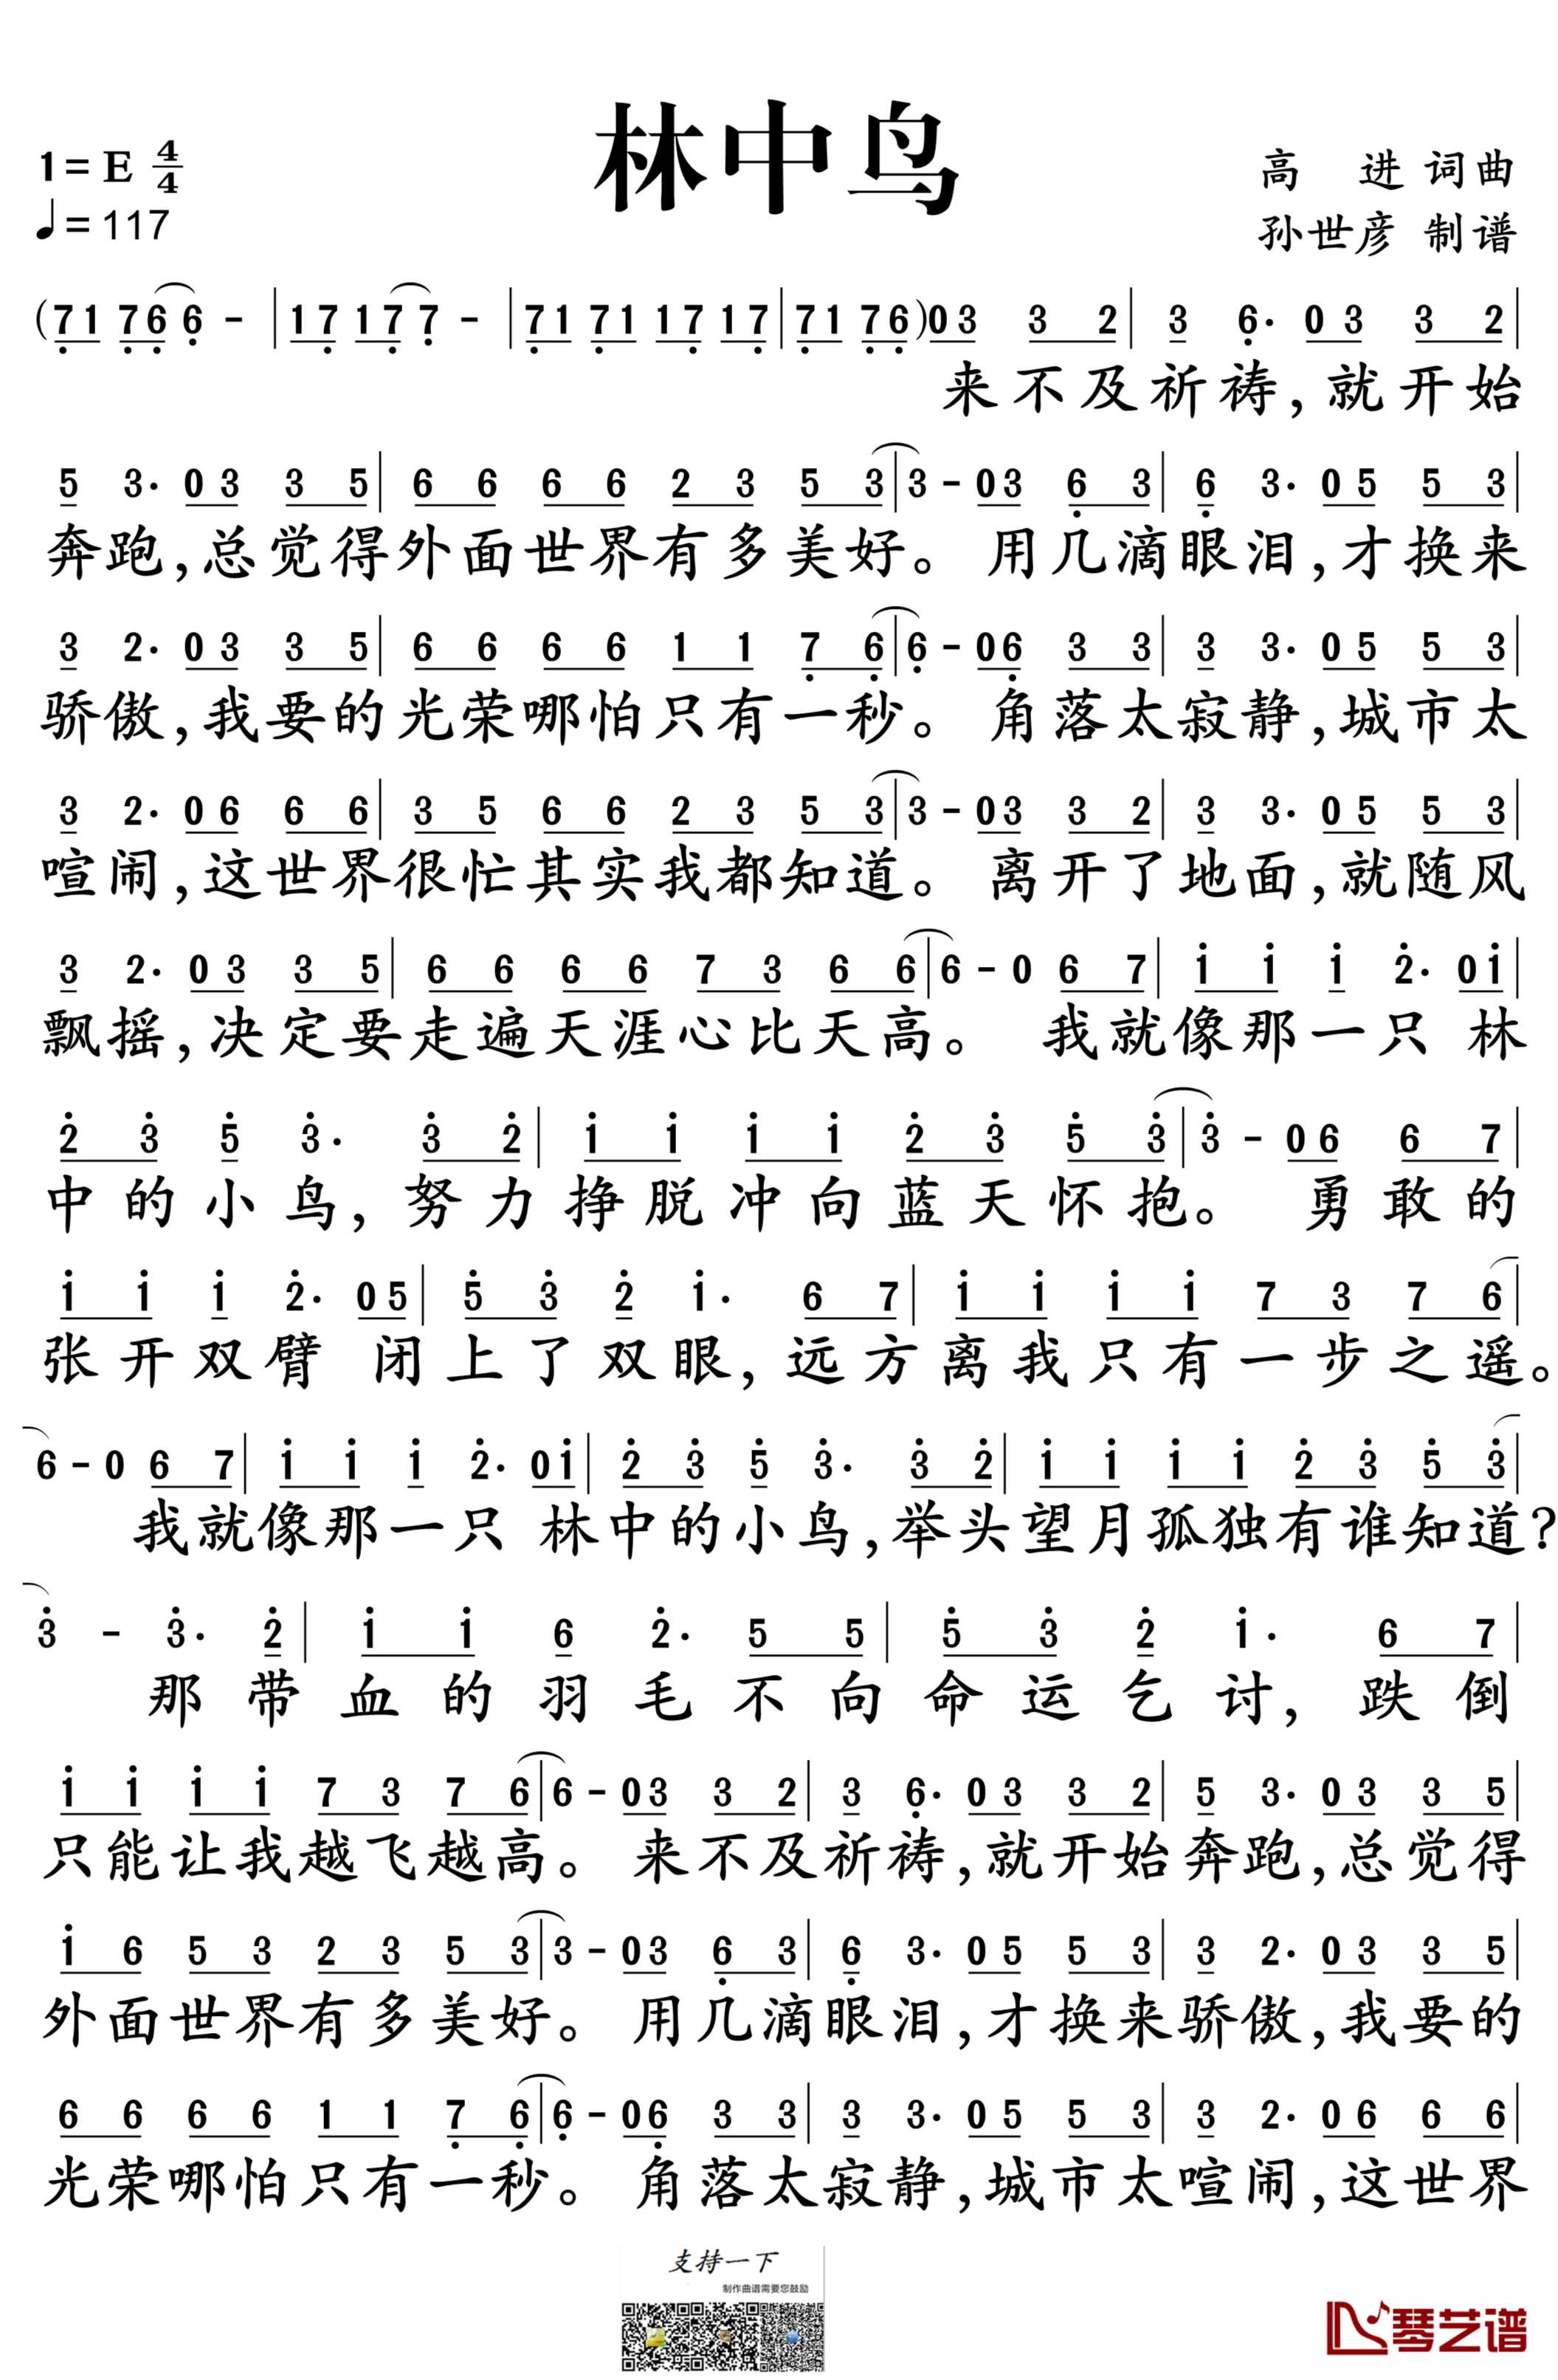 林中鸟
1= E 4/4
♩= 117
高 进 词曲
孙世彦 制谱
(7̣1 7̣6̣ 6̣ - | 17̣ 17̣ 7̣ - | 7̣1 7̣1 17̣ 17̣ | 7̣1 7̣6̣)03 3 2 | 3 6̣· 0 3 3 2 |
来不及祈祷,就开始
5 3· 0 3 3 5 | 6 6 6 6 2 3 5 3 | 3 - 03 6̣ 3 | 6̣ 3· 0 5 5 3 |
奔跑,总觉得外面世界有多美好。 用几滴眼泪,才换来
3 2· 0 3 3 5 | 6 6 6 6 1 1 7̣ 6̣ | 6̣ - 06̣ 3 3 | 3 3· 0 5 5 3 |
骄傲,我要的光荣哪怕只有一秒。 角落太寂静,城市太
3 2· 0 6 6 6 | 3 5 6 6 2 3 5 3 | 3 - 03 3 2 | 3 3· 0 5 5 3 |
喧闹,这世界很忙其实我都知道。 离开了地面,就随风
3 2· 0 3 3 5 | 6 6 6 6 7 3 6 6 | 6 - 0 6 7 | 1̇ 1̇ 1̇ 2̇· 01̇ |
飘摇,决定要走遍天涯心比天高。 我就像那一只 林
2̇ 3̇ 5̇ 3̇· 3̇ 2̇ | 1̇ 1̇ 1̇ 1̇ 2̇ 3̇ 5̇ 3̇ | 3̇ - 06 6 7 |
中的小鸟,努力挣脱冲向蓝天怀抱。 勇敢的
1̇ 1̇ 1̇ 2̇· 05 | 5̇ 3̇ 2̇ 1̇· 6 7 | 1̇ 1̇ 1̇ 1̇ 7 3 7 6 |
张开双臂 闭上了双眼,远方离我只有一步之遥。
6 - 0 6 7 | 1̇ 1̇ 1̇ 2̇· 01̇ | 2̇ 3̇ 5̇ 3̇· 3̇ 2̇ | 1̇ 1̇ 1̇ 1̇ 2̇ 3̇ 5̇ 3̇ |
我就像那一只 林中的小鸟,举头望月孤独有谁知道?
3̇ - 3̇· 2̇ | 1̇ 1̇ 6 2̇· 5 5 | 5̇ 3̇ 2̇ 1̇· 6 7 |
那带血的羽毛不向命运乞讨,跌倒
1̇ 1̇ 1̇ 1̇ 7 3 7 6 | 6 - 03 3 2 | 3 6̣· 0 3 3 2 | 5 3· 0 3 3 5 |
只能让我越飞越高。 来不及祈祷,就开始奔跑,总觉得
1̇ 6 5 3 2 3 5 3 | 3 - 03 6̣ 3 | 6̣ 3· 0 5 5 3 | 3 2· 0 3 3 5 |
外面世界有多美好。 用几滴眼泪,才换来骄傲,我要的
6 6 6 6 1 1 7̣ 6̣ | 6̣ - 06̣ 3 3 | 3 3· 0 5 5 3 | 3 2· 0 6 6 6 |
光荣哪怕只有一秒。 角落太寂静,城市太喧闹,这世界
支持一下
制作曲谱需要您鼓励
琴艺谱